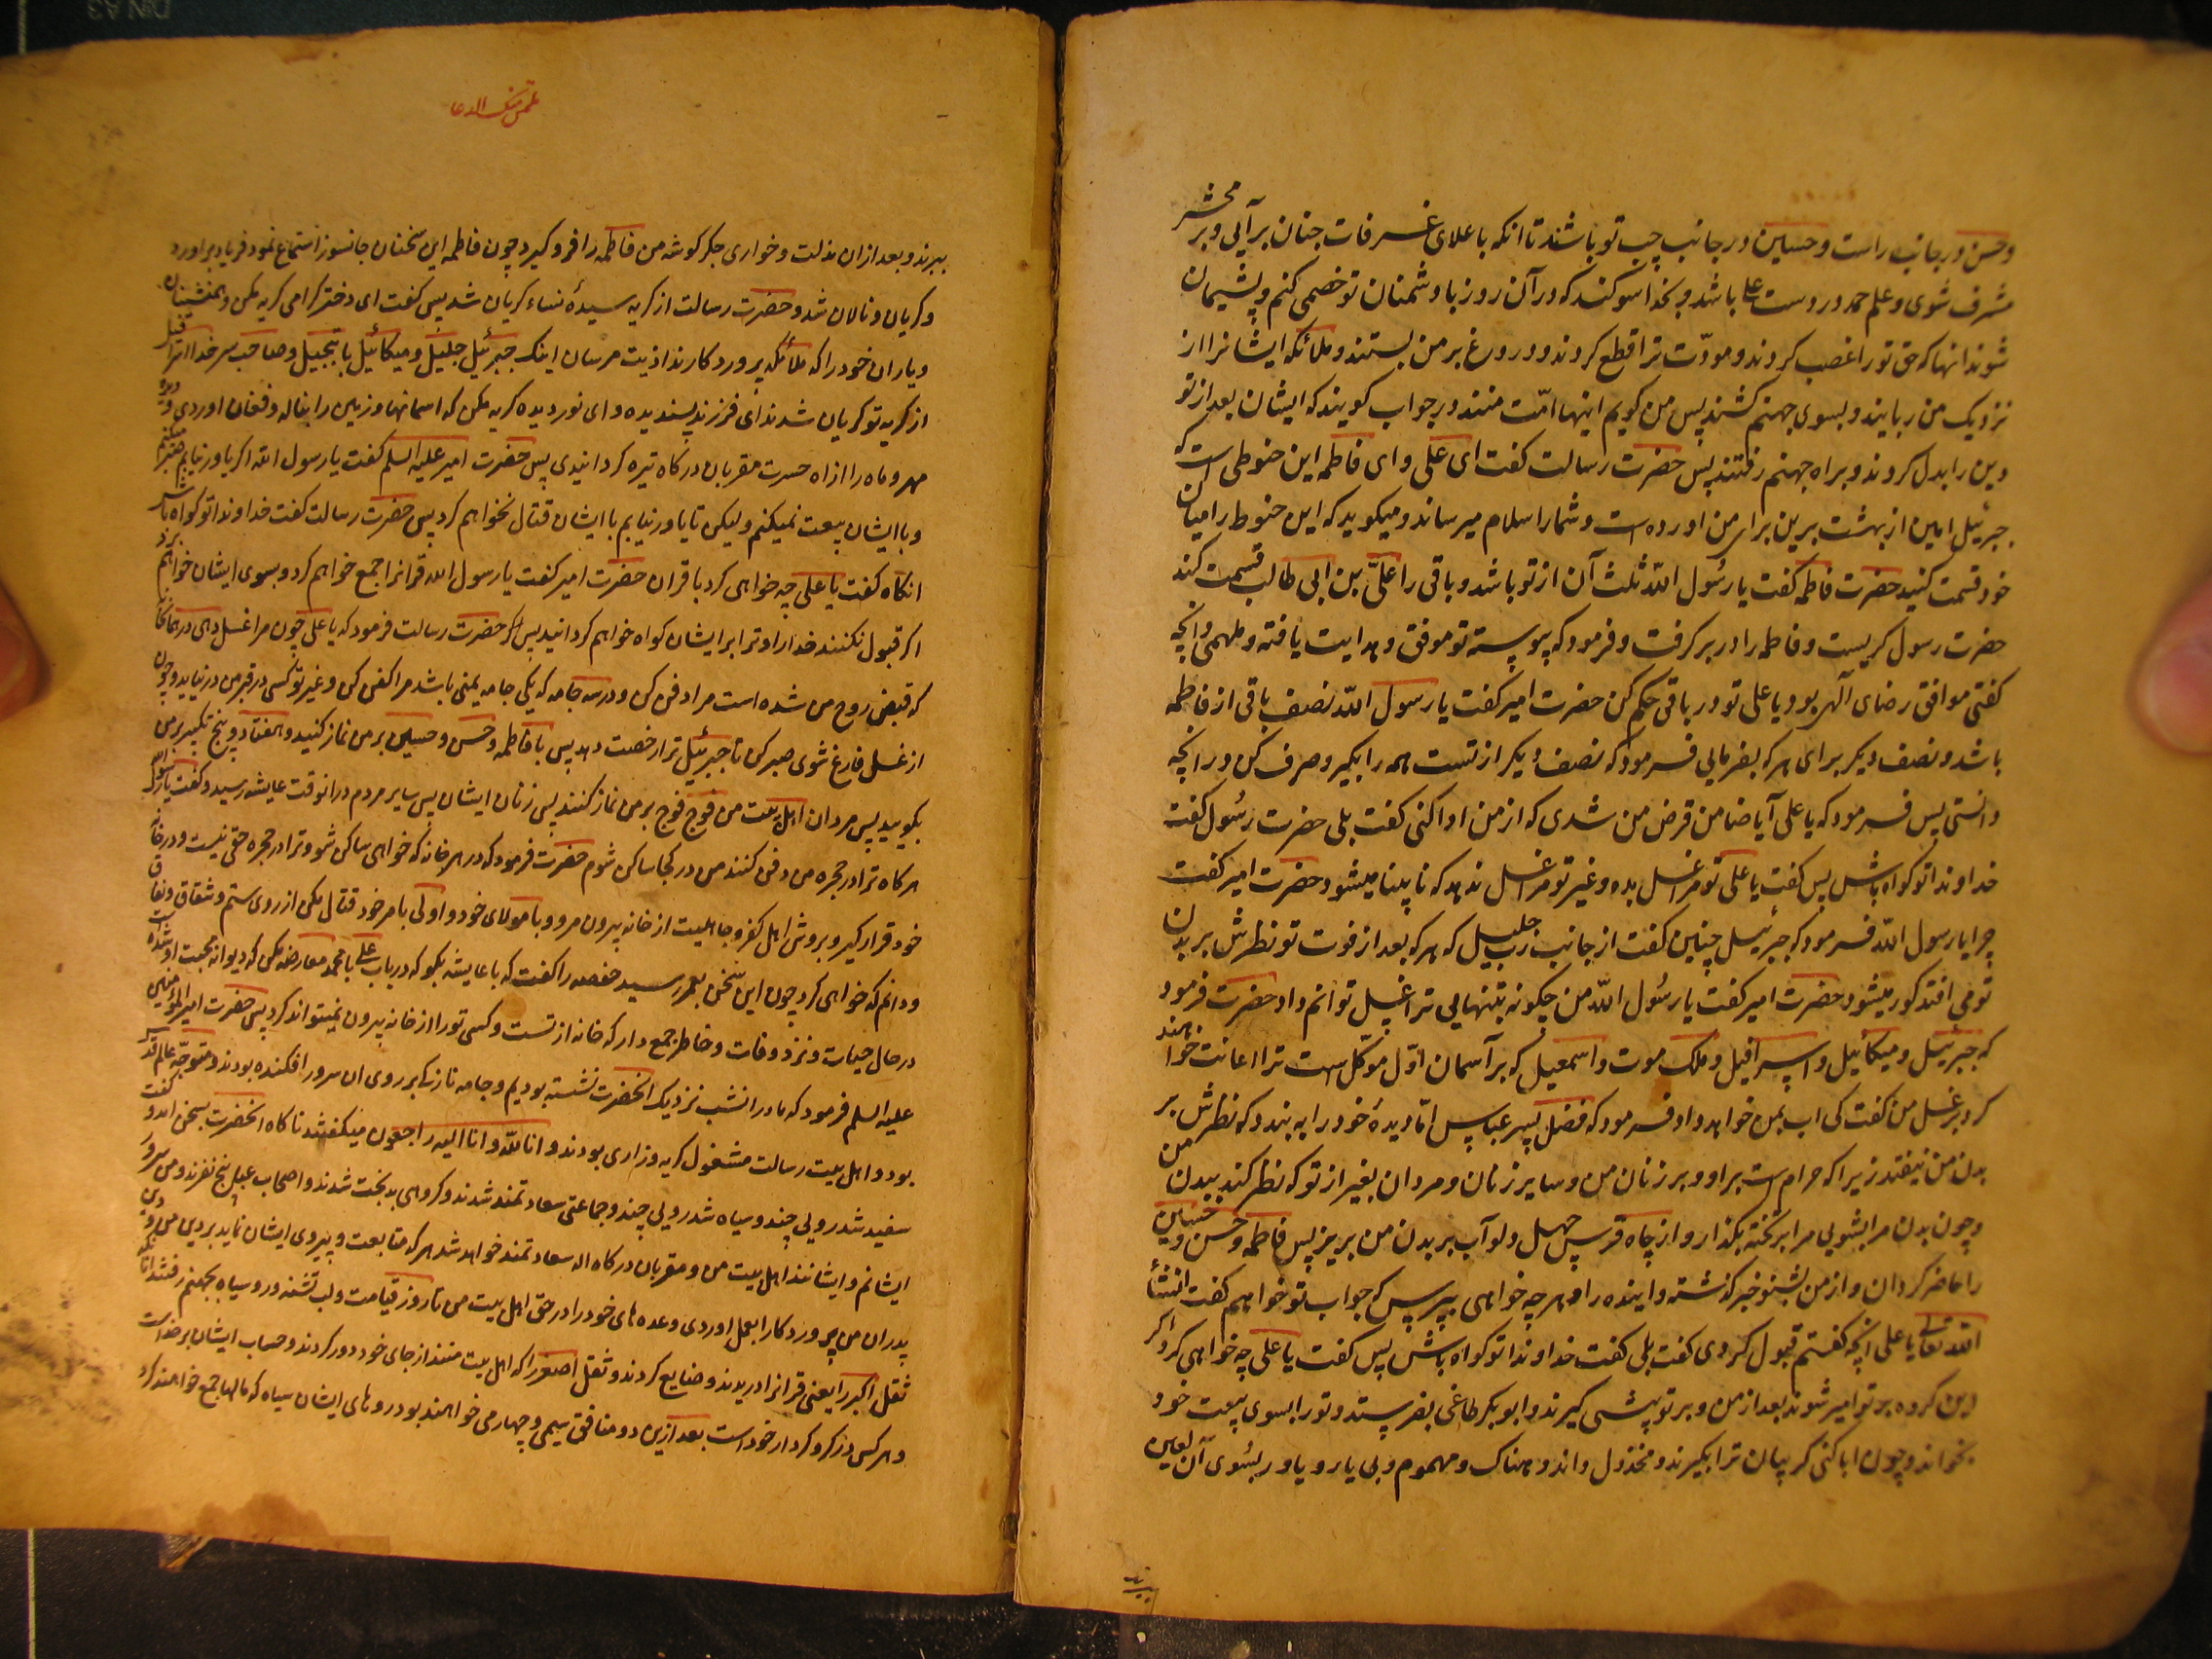 وحسن در جانب راست و حسین در جانب چپ تو باشند تا انکه باعلای غرفات جنان برآیی و بر محشر
مشرف شوی و علم حمد در دست علی باشد و بخدا سوکند که در آن روز با دشمنان تو خصمی کنم و پشیمان
شوند انها که حق تو را غصب کردند و مودّت ترا قطع کردند و دروغ بر من بستند و ملائکه ایشانرا از
نزدیک من ربایند و بسوی جهنم کشند پس من کویم اینها امّت منند در جواب کویند که ایشان بعد از تو
دین را بدل کردند و براه جهنم رفتند پس حضرت رسالت کفت ای علی و ای فاطمه این حنوطی است که
جبرئیل امین از بهشت برین برای من اورده است و شما را سلام میرساند و میکوید که این حنوط را میان
خود قسمت کنید حضرت فاطمه کفت یا رسُول اللّه ثلث آن از تو باشد و باقی را علیّ بن ابی طالب قسمت کند
حضرت رسول کریست و فاطمه را در بر کرفت و فرمود که پیوسته تو موفق و هدایت یافته و ملهمی و انچه
کفتی موافق رضای الهی بود یا علی تو در باقی حکم کن حضرت امیر کفت یا رسول اللّه نصف باقی از فاطمه
باشد و نصف دیکر برای هر که بفرمایی فرمود که نصف دیکر از تست همه را بکیر و صرف کن در انچه
دانستی پس فرمود که یا علی آیا ضامن قرض من شدی که از من ادا کنی کفت بلی حضرت رسُول کفت
خداوندا تو کواه باش پس کفت یا علی تو مرا غسل بده و غیر تو مرا غسل ندهد که نابینا میشود حضرت امیر کفت
چرا یا رسول اللّه فرمود که جبرئیل چنین کفت از جانب ربّ جلیل که هر که بعد از فوت تو نظرش بر بدن
تو می افتد کور میشود حضرت امیر کفت یا رسُول اللّه من چکونه بتنهایی ترا غسل توانم داد حضرت فرمود
که جبرئیل و میکائیل و اسرافیل و ملک موت و اسمعیل که بر آسمان اوّل موکّل است ترا اعانت خواهند
کرد بر غسل من کفت کی اب بمن خواهد داد فرمود که فضل پسر عباس امّا دیدهٔ خود را به بندد که نظرش بر
بدن من نیفتد زیرا که حرام است بر او و بر زنان من و سایر زنان و مردان بغیر از تو که نظر کند ببدن من
و چون بدن مرا بشویی مرا بر تخته بکذار و از چاه قرس چهل دلو آب بر بدن من بریز پس فاطمه و حسن و حسین
را حاضر کردان و از من بشنو خبر کذشته و اینده را و هر چه خواهی بپرس که جواب تو خواهم کفت انشاء
اللّه تعالی یا علی انچه کفتم قبول کردی کفت بلی کفت خداوندا تو کواه باش پس کفت یا علی چه خواهی کرد اکر
این کروه بر تو امیر شوند بعد از من و بر تو پیشی کیرند و ابوبکر طاغی بفرستد و تو را بسوی بیعت خود
بخواند و چون ابا کنی کریبان ترا بکیرند و مخذول و اندوهناک و مهموم و بی یار و یاور بسُوی آن لعین
ببرند و بعد از ان مذلت و خواری جکر کوشه من فاطمه را فرو کیرد چون فاطمه این سخنان جانسوز استماع نمود فریاد بر اورد
و کریان و نالان شد و حضرت رسالت از کریه سیدهٔ نساء کریان شد پس کفت ای دختر کرامی کریه مکن و همنشینان
و یاران خود را که ملائکه پروردکارند اذیت مرسان اینک جبرئیل جلیل و میکائیل با تبجیل و صاحب سر خدا اسرافیل
از کریه تو کریان شدند ای فرزند پسندیده و ای نور دیده کریه مکن که اسمانها و زمین را بناله و فغان اوردی و دیده
مهر و ماه را از اه حسرت مقربان درکاه تیره کردانیدی پس حضرت امیر علیه السلم کفت یا رسول اللّه اکر یاور نیابم صبر میکنم
و با ایشان بیعت نمیکنم ولیکن تا یاور نیابم با ایشان قتال نخواهم کرد پس حضرت رسالت کفت خداوندا تو کواه باش
انکاه کفت یا علی چه خواهی کرد با قران حضرت امیر کفت یا رسول اللّه قرانرا جمع خواهم کرد و بسوی ایشان خواهم برد
اکر قبول نکنند خدا را و ترا بر ایشان کواه خواهم کردانید پس حضرت رسالت فرمود که یا علی چون مرا غسل دهی در همانجا
که قبض روح من شده است مرا دفن کن و در سه جامه که یکی جامه یمنی باشد مرا کفن کن و غیر تو کسی در قبر من درنیاید و چون
از غسل فارغ شوی صبر کن تا جبرئیل ترا رخصت دهد پس با فاطمه و حسن و حسین بر من نماز کنید و هفتاد و پنج تکبیر بر من
بکویید پس مردان اهل بیت من فوج فوج بر من نماز کنند پس زنان ایشان پس سایر مردم در انوقت عایشه رسید و کفت یا رسول اللّه
هر کاه ترا در حجره من دفن کنند من در کجا ساکن شوم حضرت فرمود که در هر خانه که خواهی ساکن شو و ترا در حجره حقی نیست و در خانه
خود قرار کیر و بروش اهل کفر و جاهلیت از خانه بیرون مرو و با مولای خود و اولی بامر خود قتال مکن از روی ستم و شقاق و نفاق
و دانم که خواهی کرد چون این سخن بعمر رسید حفصه را کفت که با عایشه بکو که در باب علی با محمد معارضه مکن که دیوانه محبت او شده است
در حال حیات و نزد وفات و خاطر جمع دار که خانه از تست و کسی تو را از خانه بیرون نمیتواند کرد پس حضرت امیر المؤمنین
علیه السلم فرمود که ما در انشب نزدیک انحضرت نشسته بودیم و جامه نازکی بر روی ان سرور افکنده بودند و متوجه عالم قدس
بود و اهل بیت رسالت مشغول کریه و زاری بودند و انا للّه و انا الیه راجعون میکفتند ناکاه انحضرت بسخن امد و کفت
سفید شد رویی چند و سیاه شد رویی چند و جماعتی سعادتمند شدند و کروهی بدبخت شدند و اصحاب عبا پنج نفرند و من سرور
ایشانم و ایشانند اهل بیت من و مقربان درکاه اله سعادتمند خواهد شد هر که متابعت و پیروی ایشان نماید بر دین من و دین
پدران من پروردکارا بعمل اوردی وعده های خود را در حق اهل بیت من تا روز قیامت و لب تشنه و رو سیاه بجهنم رفتند انانکه
ثقل اکبر را یعنی قرانرا دریدند و ضایع کردند و ثقل اصغر را که اهل بیت منند از جای خود دور کردند و حساب ایشان بر خداست
و هر کس در کرو کردار خود است بعد ازین دو منافق سیمی و چهارمی خواهند بود روهای ایشان سیاه که مالها جمع خواهند کرد